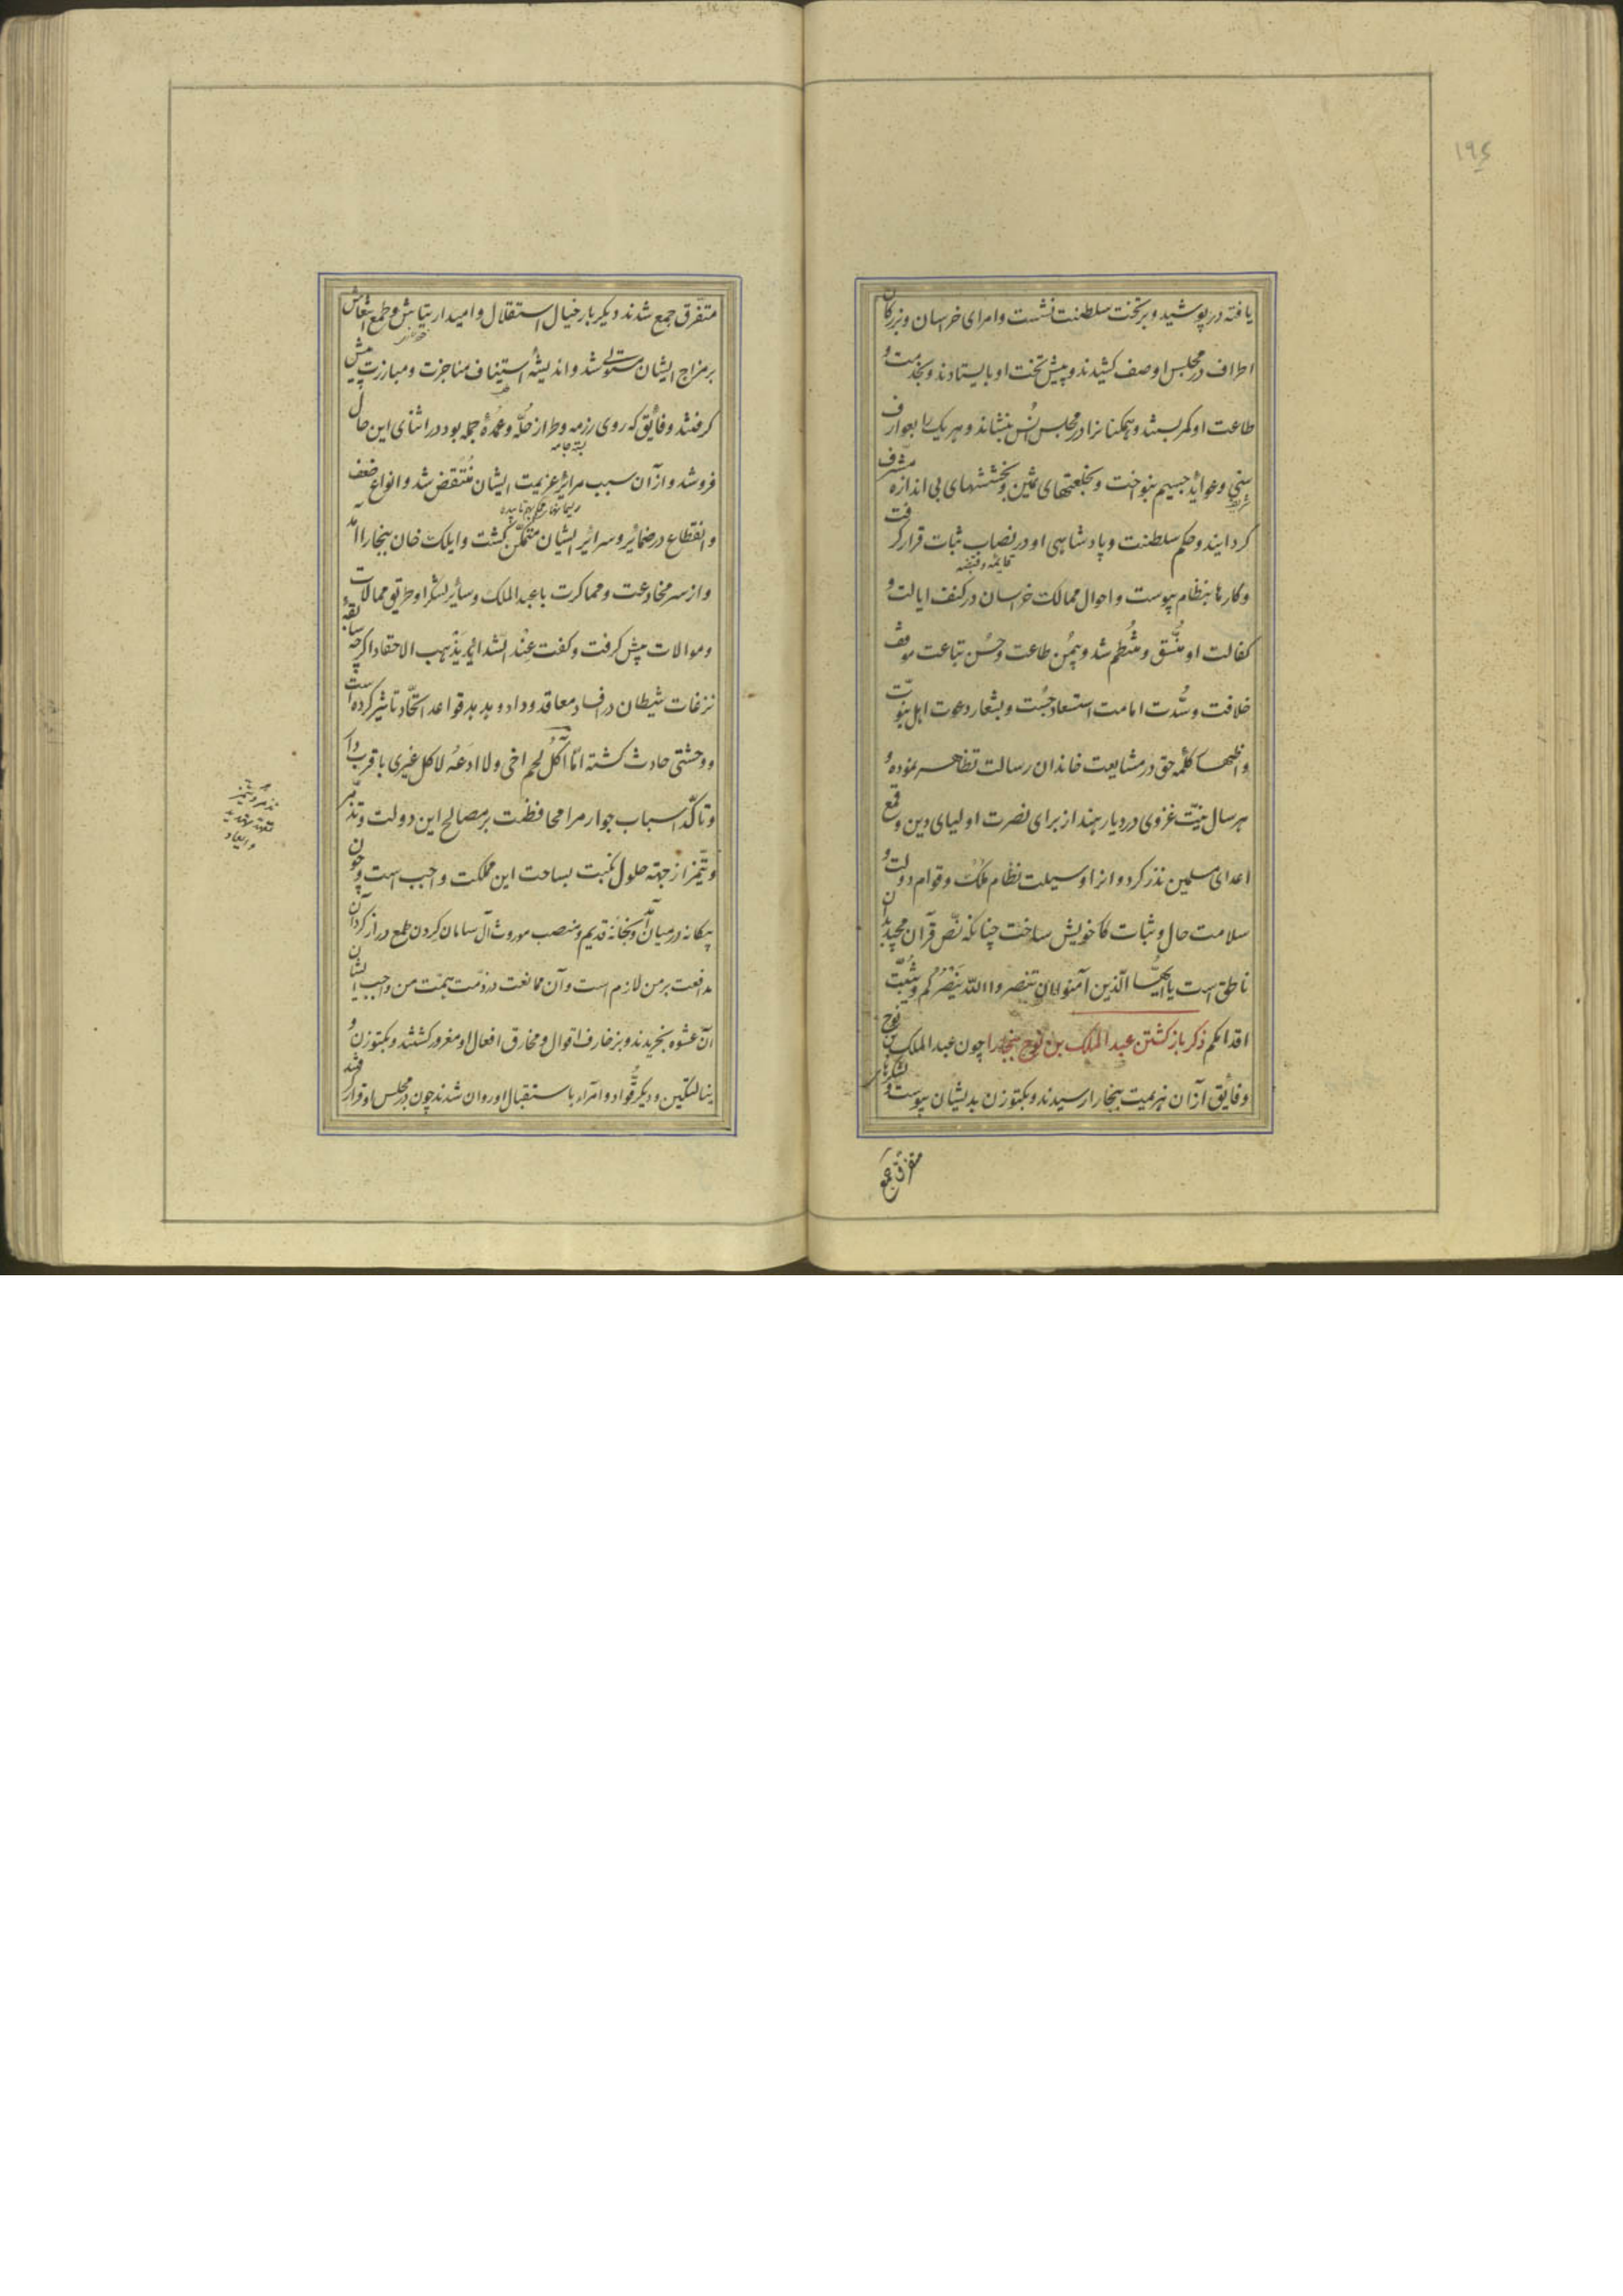 ۱۹۶
یافته در پوشید و بر تخت سلطنت نشست و امرای خراسان و بزرکان
اطراف در مجلس او صف کشیدند و پیش تخت او بایستادند و بخدمت و
طاعت او کمر بستند و همکنانرا در مجلس انس بنشاند و هر یک را بعوارف
سنی و عواید جسیم بنواخت و بخلعتهای ثمین و بخششهای بی اندازه مشرف
کردانید و حکم سلطنت و پادشاهی او در نصاب ثبات قرار کرفت
وکارها بنظام پیوست و احوال ممالک خراسان در کنف ایالت و
کفالت او متسق و منتظم شد و بیمن طاعت و حسن تباعت موقف
خلافت و سدت امامت استسعاد جست و بشعار دعوت اهل نبوت
و اظهار کلمه حق در مشایعت خاندان رسالت تظاهر نموده و
هر سال نیت غزوی در دیار هند از برای نصرت اولیای دین و قمع
اعدای مسلمین نذر کرد و انرا وسیلت نظام ملک و قوام دولت و
سلامت حال و ثبات کار خویش ساخت چنانکه نص قرآن مجید بدان
ناطق است یا ایها الذین آمنوا ان تنصروا الله ینصرکم و یثبت
اقدامکم ذکر بازکشتن عبد الملک بن نوح ببخارا چون عبد الملک بن نوح
و فایق از آن هزیمت ببخارا رسیدند و بکتوزن بدیشان پیوست و لشکرهای
متفرق جمع
متفرق جمع شدند دیکر بار خیال استقلال و امید ارتیاش و طمع انتعاش
بر مزاج ایشان مستولی شد و اندیشه استیناف مناجزت و مبارزت پیش
کرفتند و فایق که روی رزمه و طراز حله و عمده جمله بود در اثنای این حال
بسته جامه
فرو شد و از آن سبب مرایر عزیمت ایشان منتقض شد و انواع ضعف
و انقطاع در ضمایر و سرائر ایشان متمکن کشت و ایلک خان ببخارا آمد
و از سر مخادعت و مماکرت با عبد الملک و سائر لشکر او طریق ممالات
و موالات پیش کرفت و کفت عند الشدائد یذهب الاحقاد اکرچه سابقه
نزغات شیطان در افساد معاقد وداد و هدهد قواعد اتحاد تاثیر کرده است
و وحشتی حادث کشته اما آکل لحم اخی و لا ادعه لاکل غیری با قرب دار
و تاکد اسباب جوار مرا محافظت بر مصالح این دولت و تذمر
و تنمر از جهة حلول نکبت بساحت این مملکت واجب است و چون
بیکانه در میان آمد و بخانه قدیم و منصب موروث آل سامان کردن طمع دراز کرد آن
مدافعت بر من لازم است و آن ممانعت در ذمت همت من واجب ایشان
آن عشوه بخریدند و بزخارف اقوال و مخارق افعال او مغرور کشتند و بکتوزن و
ینالتکین و دیکر قواد و امراء باستقبال او روان شدند چون در مجلس او قرار کرفتند